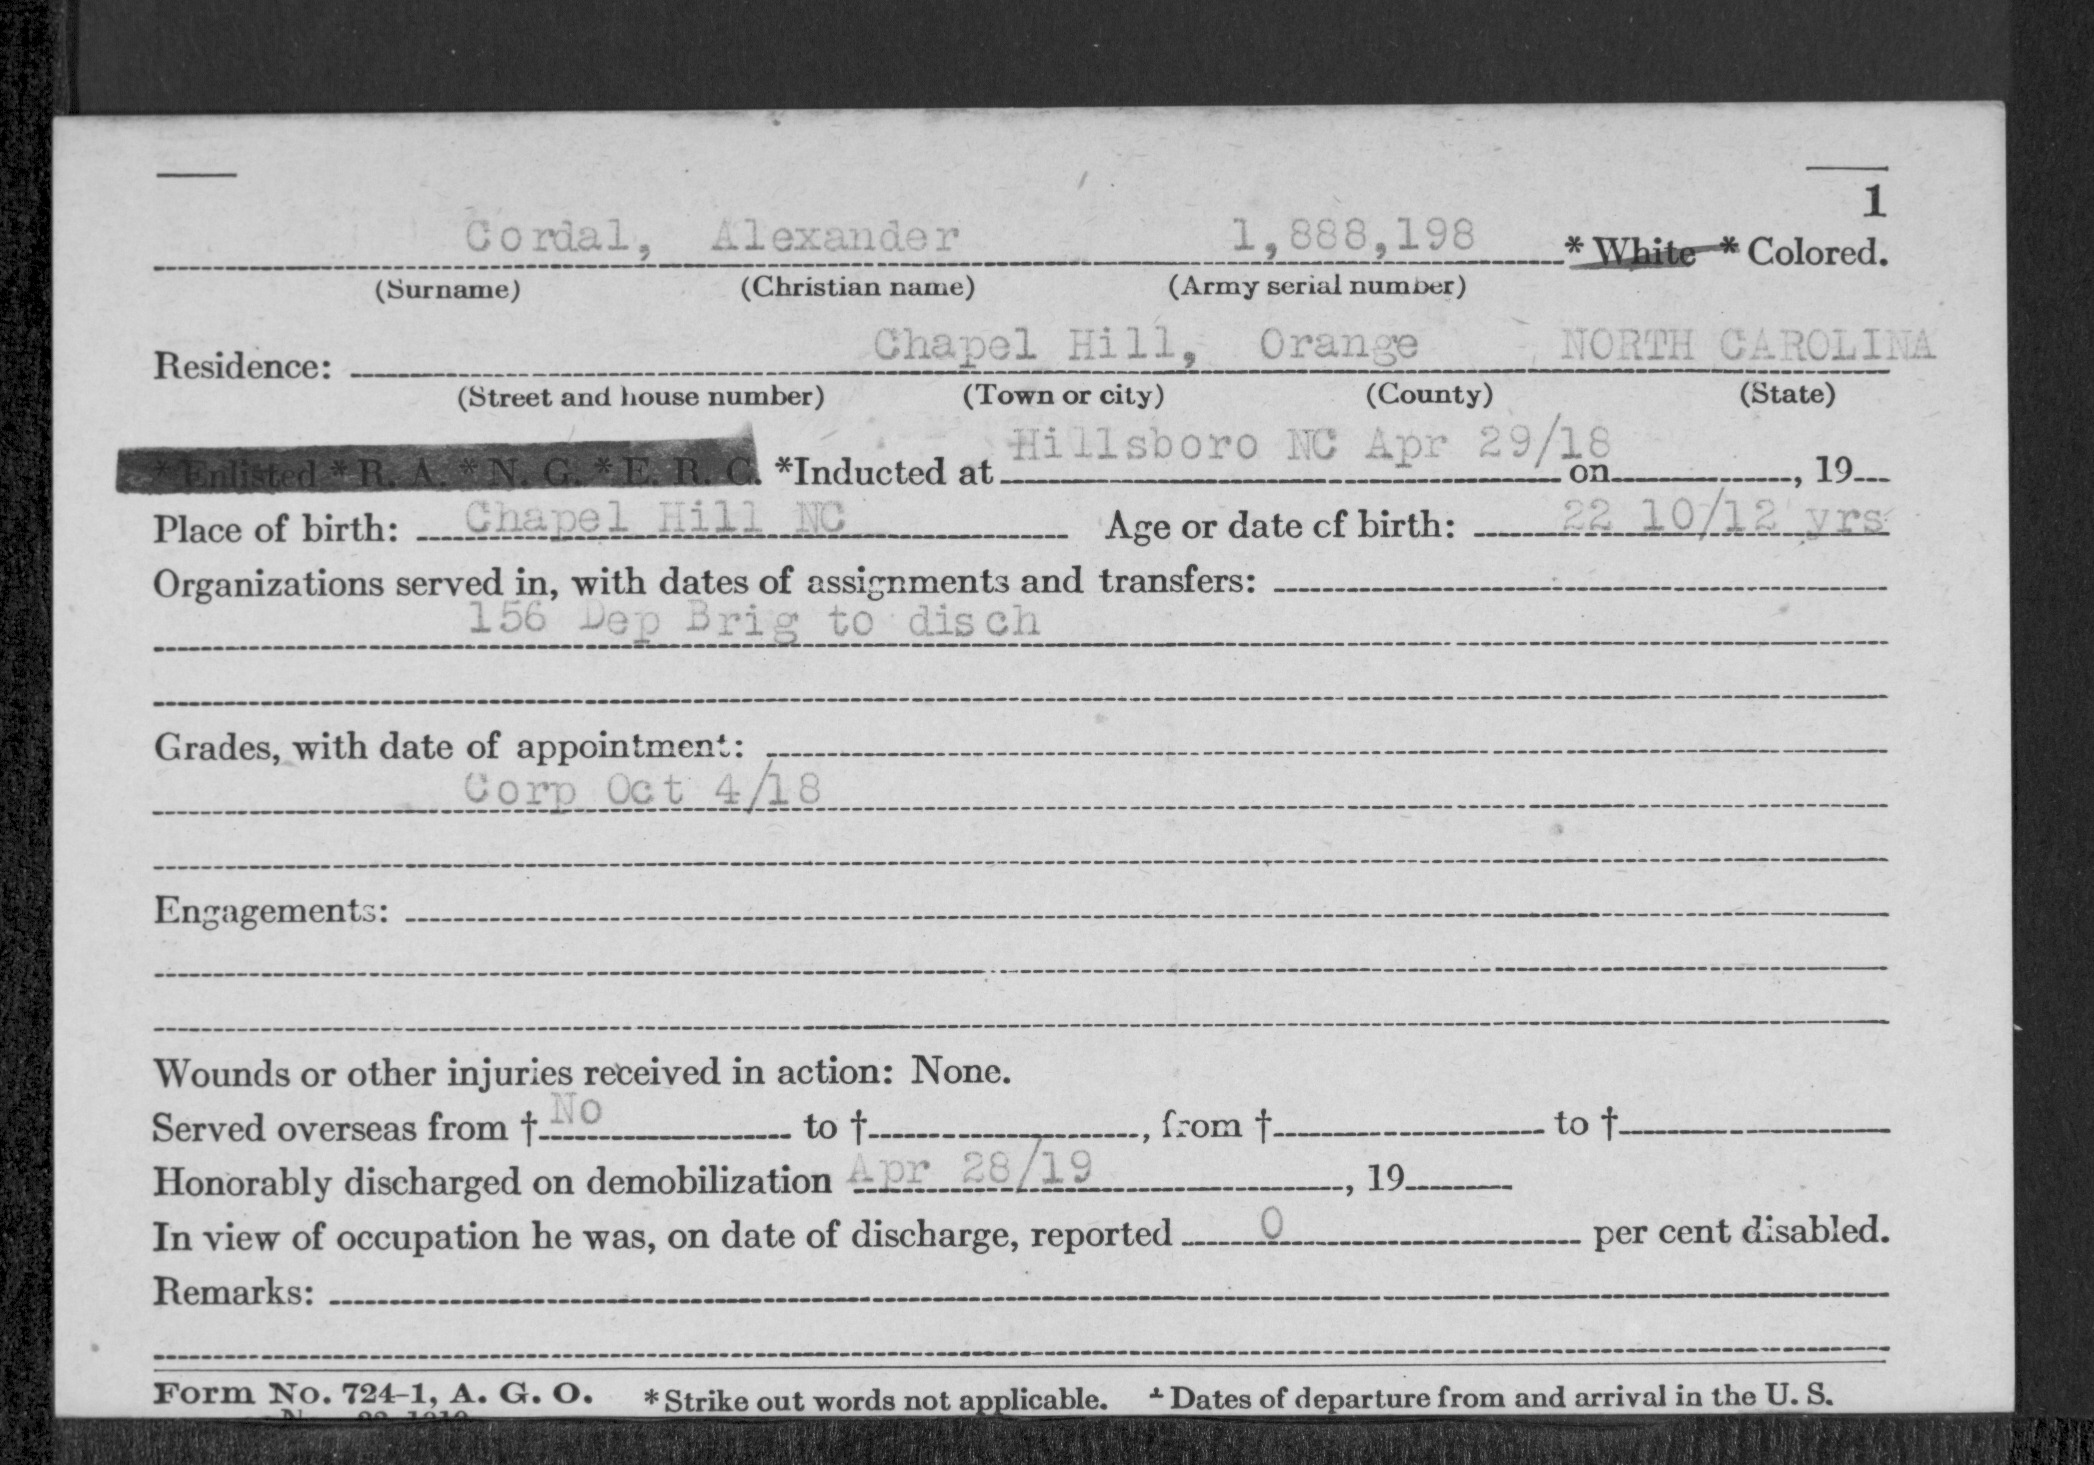 1
Cordal, Alexander 1,888,198 * White * Colored.
(Surname) (Christian name) (Army serial number)
Residence: Chapel Hill, Orange NORTH CAROLINA
(Street and house number) (Town or city) (County) (State)
* Enlisted * R. A. * N. G. * E. R. C. *Inducted at Hillsboro NC Apr 29/18 on , 19
Place of birth: Chapel Hill NC Age or date of birth: 22 10/12 yrs
Organizations served in, with dates of assignments and transfers:
156 Dep Brig to disch
Grades, with date of appointment:
Corp Oct 4/18
Engagements:
Wounds or other injuries received in action: None.
Served overseas from † No to † , from † to †
Honorably discharged on demobilization Apr 28/19 , 19
In view of occupation he was, on date of discharge, reported 0 per cent disabled.
Remarks:
Form No. 724-1, A. G. O. * Strike out words not applicable. † Dates of departure from and arrival in the U. S.